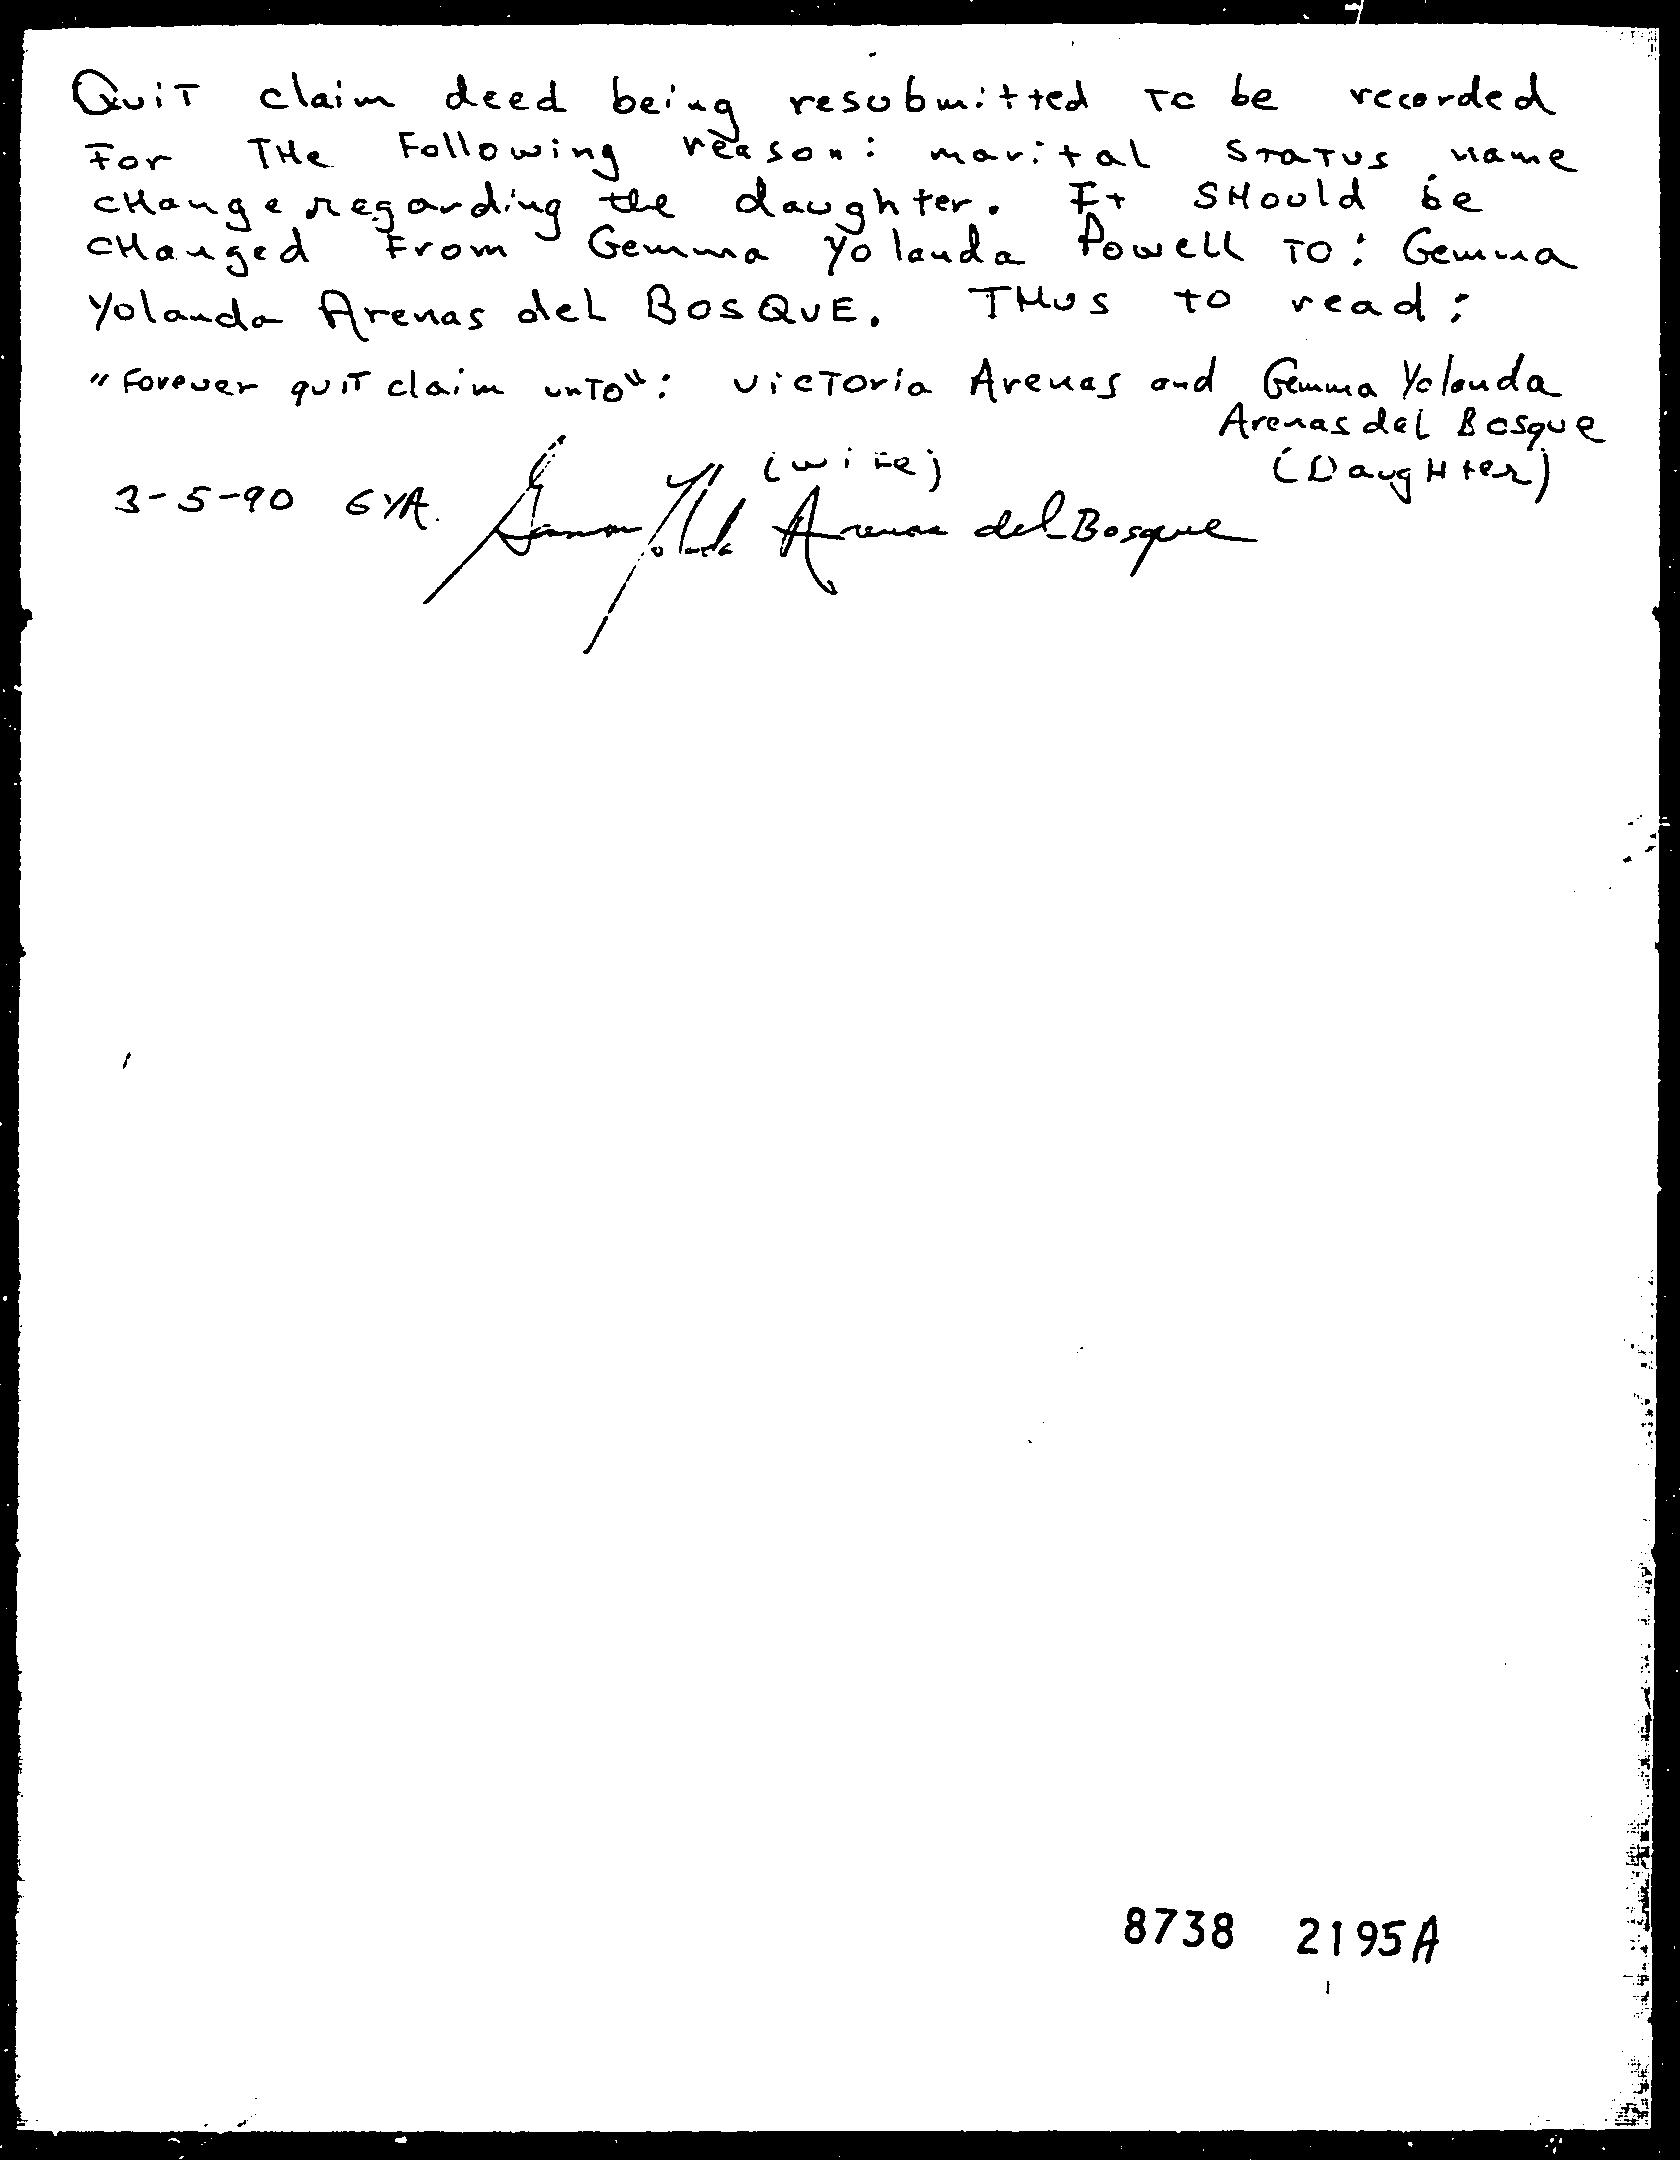 Quit claim deed being resubmitted to be recorded
For THe Following reason: marital STaTus name
cHange regarding the daughter. It SHould be
cHanged From Gemma Yolanda Powell To: Gemma
Yolanda Arenas del BosQUE. THus to read:
"Forever quit claim unTo": VicToria Arenas and Gemma Yolanda
Arenas del Bosque
(wife) (DaugHter)
3-5-90 GYA. Gemma Yolanda Arenas del Bosque
8738 2195A